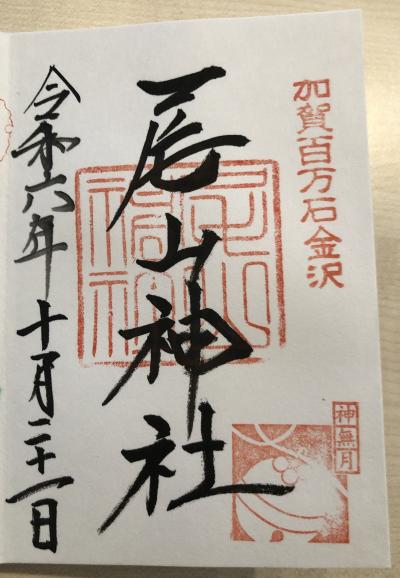 加賀百万石金沢
尾山神社
神無月
令和六年十月二十一日